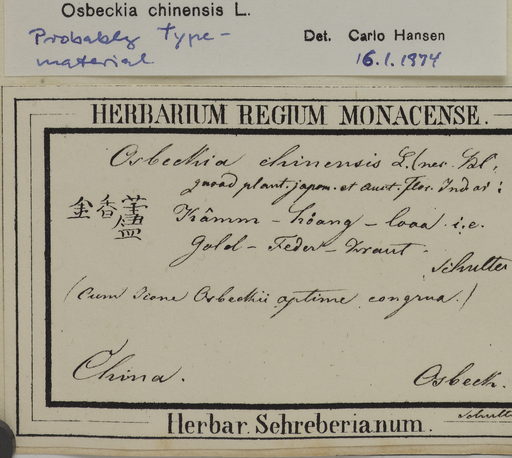 Osbeckia chinensis L.
Probably type-
material
Det. Carlo Hansen
16.1.1974
HERBARIUM REGIUM MONACENSE.
Osbeckia chinensis L. (nec.
quoad plant. japon. et auct. Flor. Ind or:
金香蘆
Kâmm - hôang - looa i.e.
Gold - Feder - Kraut.
Schultes
(Cum Icone Osbeckii optime congrua.)
China.
Osbeck.
Herbar. Schreberianum.